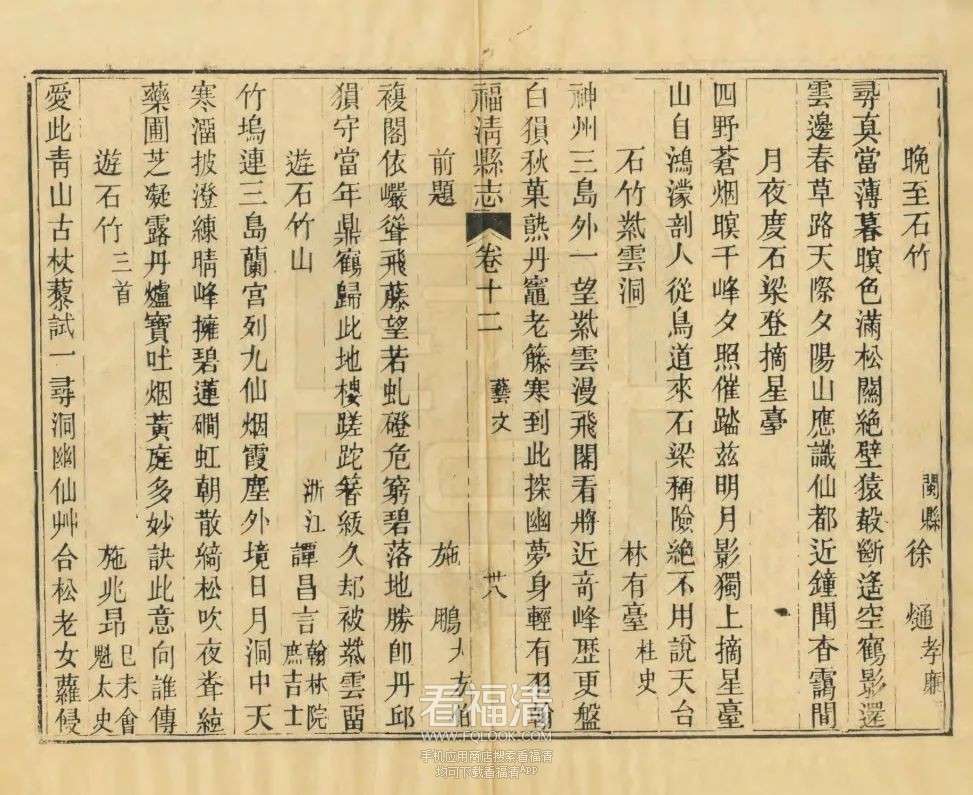 晚至石竹 閩縣徐𤊹孝廉
尋真當薄暮暝色滿松關絕壁猿聲斷遙空鶴影還
雲邊春草路天際夕陽山應識仙都近鐘聞杳靄間
月夜度石梁登摘星臺
四野蒼烟暝千峰夕照催踏茲明月影獨上摘星臺
山自鴻濛剖人從鳥道來石梁稱險絕不用說天台
石竹紫雲洞 林有臺柱史
神州三島外一望紫雲漫飛閣看將近奇峰歷更盤
白猿秋菓熟丹竈老籐寒到此探幽夢身輕有羽翰
福清縣志 卷十二 藝文 卅八
前題 施鵬大方伯
複閣依巖聳飛藤望若虬磴危窮碧落地勝卽丹邱
猿守當年鼎鶴歸此地樓蹉跎簪紱久却被紫雲畱
遊石竹山 浙江譚昌言翰林院庶吉士
竹塢連三島蘭宮列九仙烟霞塵外境日月洞中天
寒溜披澄練晴峰擁碧蓮磵虹朝散綺松吹夜聳絃
藥圃芝凝露丹爐寶吐烟黃庭多妙訣此意向誰傳
遊石竹三首 施兆昂己未會魁太史
愛此靑山古杖藜試一尋洞幽仙艸合松老女蘿侵
看福清
WWW.FQLOOK.COM
手机应用商店搜索看福清
均可下载看福清APP